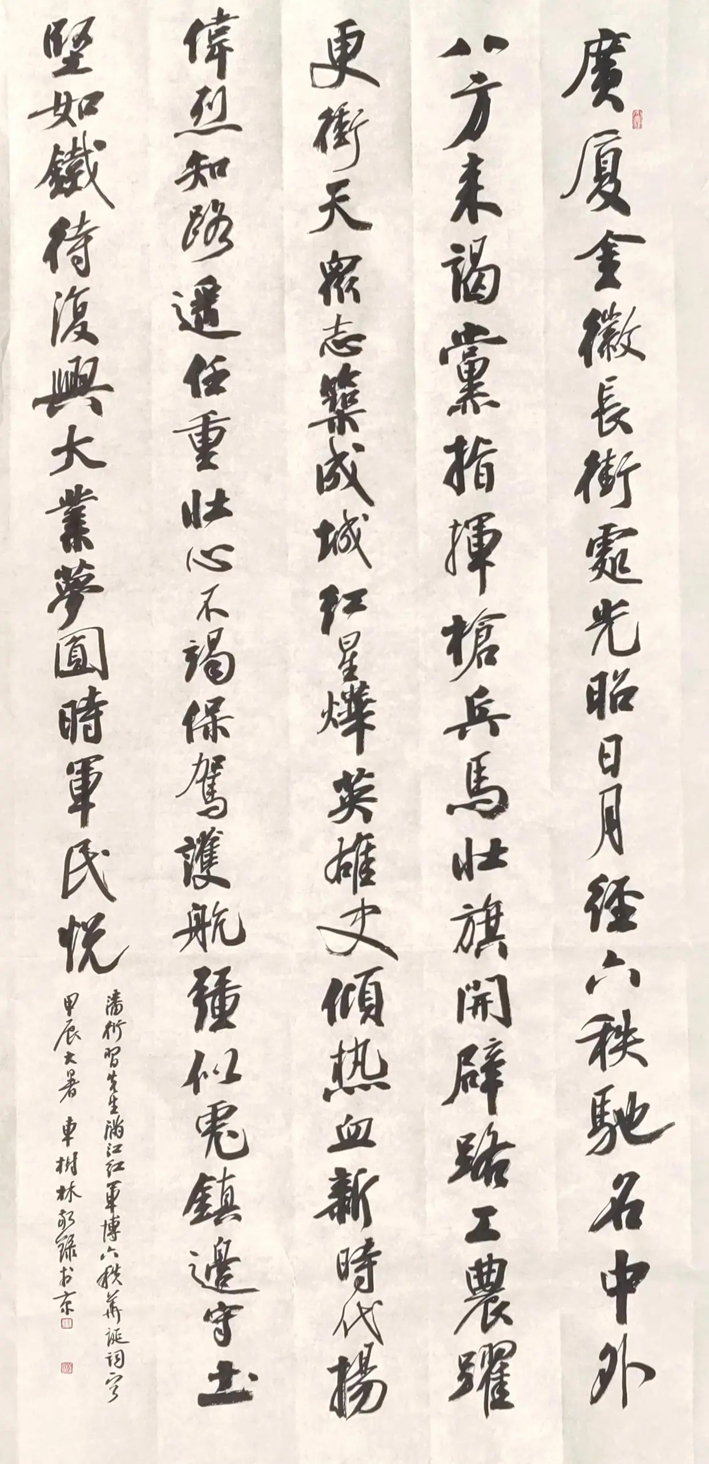 廣厦金徽長街霓光昭日月經六秩馳名中外
八方来謁黨指揮槍兵馬壯旗開辟路工農躍
更衝天眾志築成城红星燁英雄史傾热血新時代揚
偉烈知路遥任重壯心不竭保駕護航彊似虎鎮邊守土
堅如鐵待復興大業夢圓時軍民悦
潘衍習先生滿江红軍博六秩華诞詞一首
甲辰大暑車樹林敬錄於京